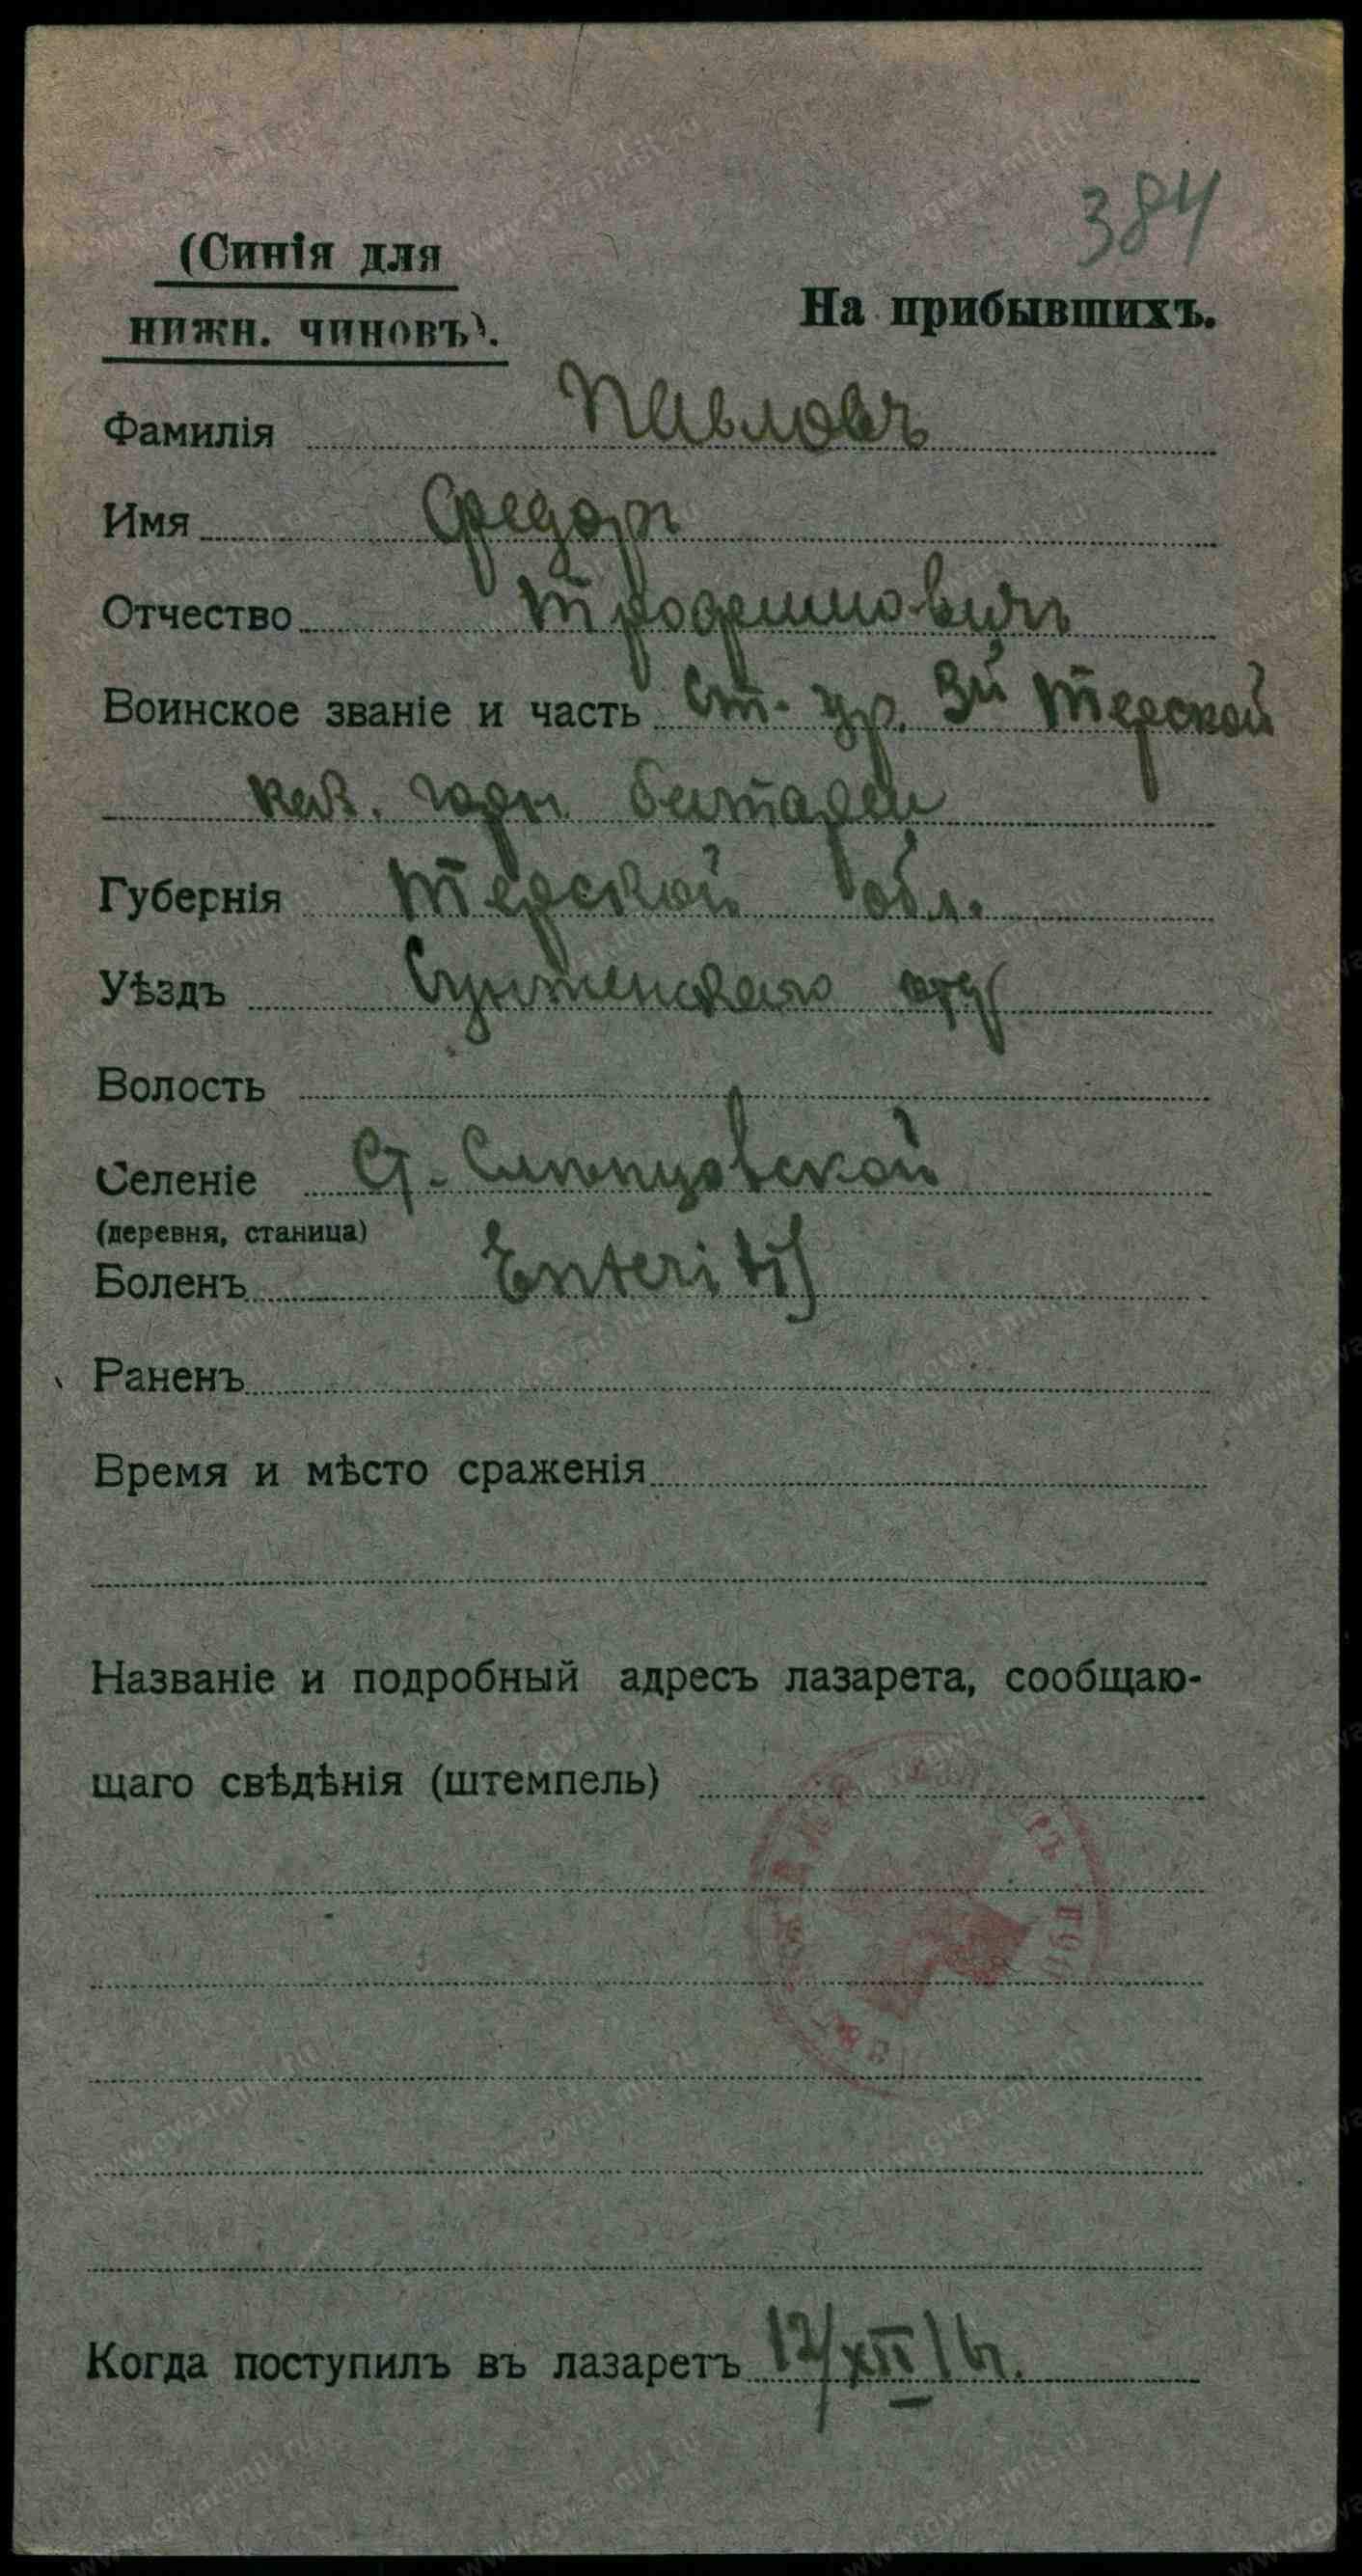 384
(Синія для
нижн. чиновъ).
На прибывшихъ.
Фамилія Павловъ
Имя Федоръ
Отчество Трофимовичъ
Воинское званіе и часть Ст. ур. 3й Терской
каз. горн батареи
Губернія Терской обл.
Уѣздъ Сунженскаго отд
Волость
Селеніе Ст. Слѣпцовской
(деревня, станица)
Боленъ Enteritis
Раненъ
Время и мѣсто сраженія
Названіе и подробный адресъ лазарета, сообщаю-
щаго свѣдѣнія (штемпель)
Когда поступилъ въ лазаретъ 12/XII 16 г.